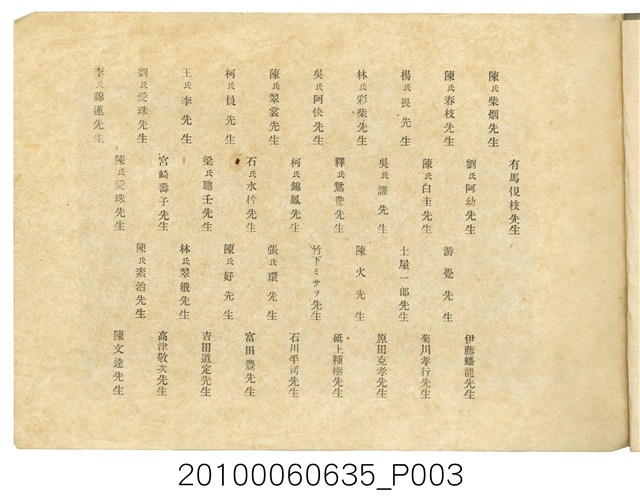 陳氏柴烟先生
陳氏春枝先生
楊氏畏先生
林氏彩柴先生
吳氏阿快先生
陳氏翠裳先生
柯氏員先生
王氏李先生
劉氏愛珠先生
李氏錦蓮先生
有馬俔枝先生
劉氏阿幼先生
陳氏白圭先生
吳氏謙先生
釋氏鴛鴦先生
柯氏錦鳳先生
石氏水衿先生
梁氏聰壬先生
宮崎壽子先生
陳氏愛珠先生
游覺先生
土屋一郎先生
陳火先生
竹下ミサヲ先生
張氏環先生
陳氏好先生
林氏翠娥先生
陳氏素治先生
伊藤蟠龍先生
菊川孝行先生
原田克孝先生
砥上種樹先生
石川平司先生
富田豊先生
吉田道定先生
高津敬次先生
陳文達先生
20100060635_P003